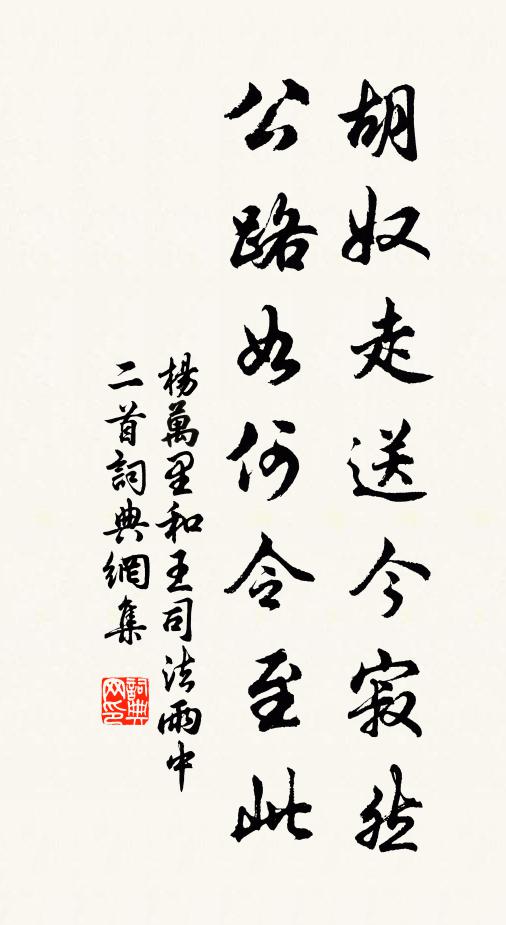 胡奴走送今寂然
公路如何令至此
楊萬里和王司法雨中
二首詞典網集
詞典
网印